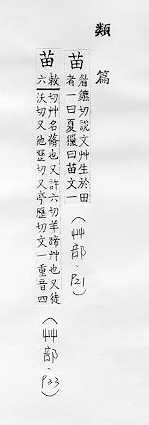 類篇
苗 眉鑣切說文艸生於田
者一曰夏獵曰苗文一
(艸部·P21)
苖 敕六切艸名蓨也又許六切羊蹄艸也又徒
沃切又他歷切又亭歷切文一重音四
(艸部·P23)